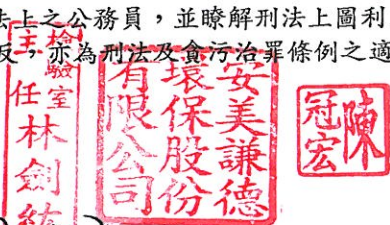 法上之公務員，並瞭解刑法上圖利
反，亦為刑法及貪污治罪條例之適
檢驗室
主任林劍
安美謙德
環保股份
有限公司
陳
冠宏